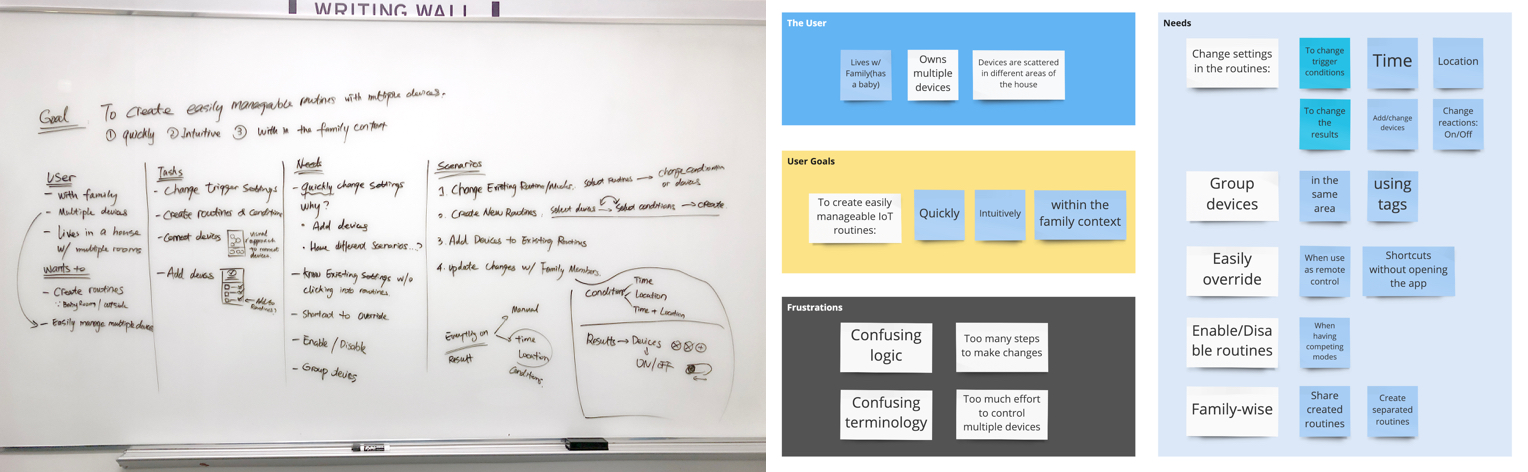 WRITING WALL
Goal To create easily manageable routines with multiple devices.
① quickly ② Intuitive ③ with in the family context
User
- with family
- Multiple devices
- Lives in a house
w/ multiple rooms
Wants to
- Create routines
∵ Baby Room / outside
- Easily manage multiple devices
Tasks
- Change trigger settings
- Create routines & conditions
- Connect devices
- Add devices
Needs
- Quickly change settings
why?
• Add devices
• Have different scenarios...?
- know Existing settings w/o
clicking into routines
- Shortcut to override
- Enable / Disable
- Group devices
Scenarios
1. Change Existing Routines/Modes. Select Routines → change condition
or devices
2. Create New Routines. select devices select conditions → create
3. Add Devices to Existing Routines
4. update changes w/ Family Members
Everything on
Result
Manual
Time
Location
Conditions
Condition
Time
Location
Time + Location
Results → Devices
ON/OFF
The User
Lives w/
Family(has
a baby)
Owns
multiple
devices
Devices are scattered
in different areas of
the house
User Goals
To create easily
manageable IoT
routines:
Quickly
Intuitively
within the
family context
Frustrations
Confusing
logic
Too many steps
to make changes
Confusing
terminology
Too much effort
to control
multiple devices
Needs
Change settings
in the routines:
To change
trigger
conditions
Time
Location
To change
the
results
Add/change
devices
Change
reactions:
On/Off
Group
devices
in the
same
area
using
tags
Easily
override
When use
as remote
control
Shortcuts
without opening
the app
Enable/Disa
ble routines
When
having
competing
modes
Family-wise
Share
created
routines
Create
separated
routines